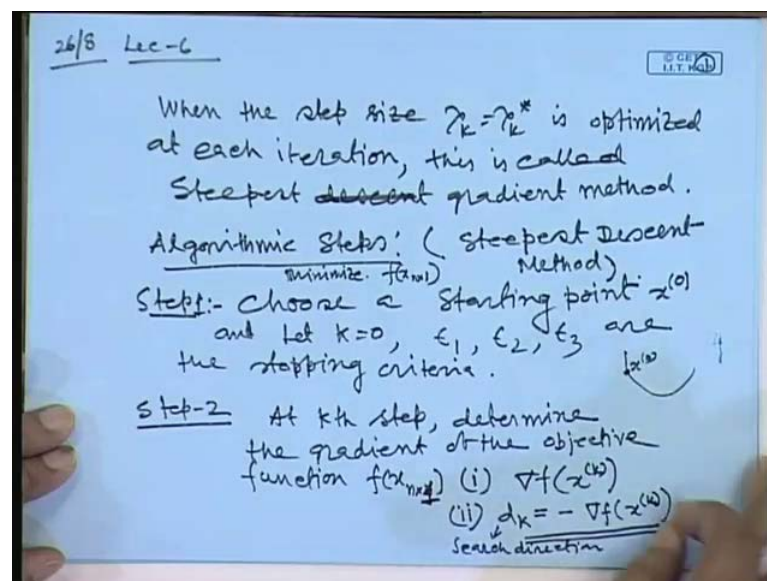 26/8 Lec-6
© CET
I.I.T. KGP
When the step size λ_k = λ_k^* is optimized
at each iteration, this is called
Steepest descent gradient method.
Algorithmic Steps: ( Steepest Descent
Method)
minimize. f(x_{n×1})
Step1:- Choose a starting point x^{(0)}
and Let K=0, ε_1, ε_2, ε_3 are
the stopping criteria.
x^{(0)}
Step-2 At kth step, determine
the gradient of the objective
function f(x_{n×1}) (i) ∇f(x^{(k)})
(ii) d_k = - ∇f(x^{(k)})
Search direction